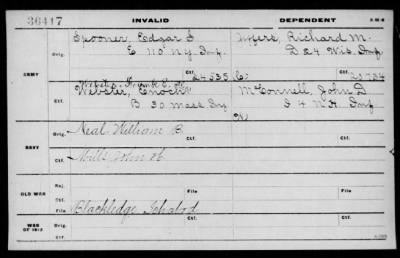 36417
INVALID
DEPENDENT
ARMY
Orig.
Spooner, Edgar S
E 110 N.Y. Inf.
Richard M.
D 24 Wis Inf
Ctf.
24535
Ctf.
20734
Webster, Enoch
B 30 Mass Inf
McConnell, John D
I 4 N.H. Inf
NAVY
Orig.
Neal William B.
Ctf.
Ctf.
Mills John H
OLD WAR
Rej.
Ctf.
File
File
WAR OF 1812
Orig.
Blackledge Ichabod
Ctf.